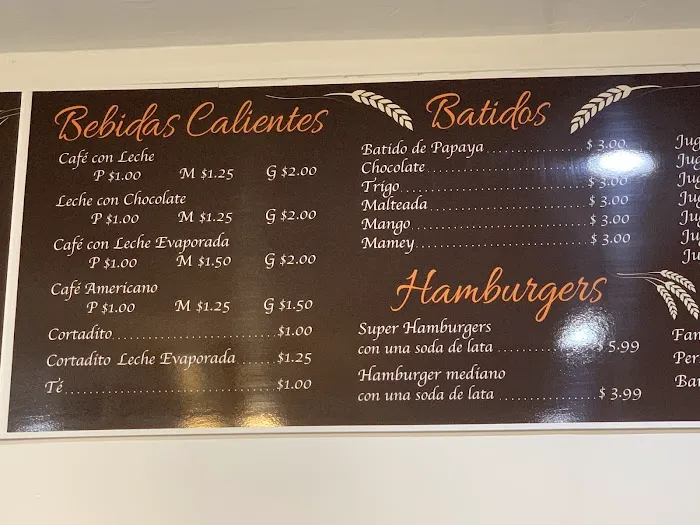 Bebidas Calientes
Café con Leche
P $1.00 M $1.25 G $2.00
Leche con Chocolate
P $1.00 M $1.25 G $2.00
Café con Leche Evaporada
P $1.00 M $1.50 G $2.00
Café Americano
P $1.00 M $1.25 G $1.50
Cortadito $1.00
Cortadito Leche Evaporada $1.25
Té $1.00
Batidos
Batido de Papaya $ 3.00
Chocolate
Trigo $ 3.00
Malteada $ 3.00
Mango $ 3.00
Mamey $ 3.00
Hamburgers
Super Hamburgers
con una soda de lata $ 5.99
Hamburger mediano
con una soda de lata $ 3.99